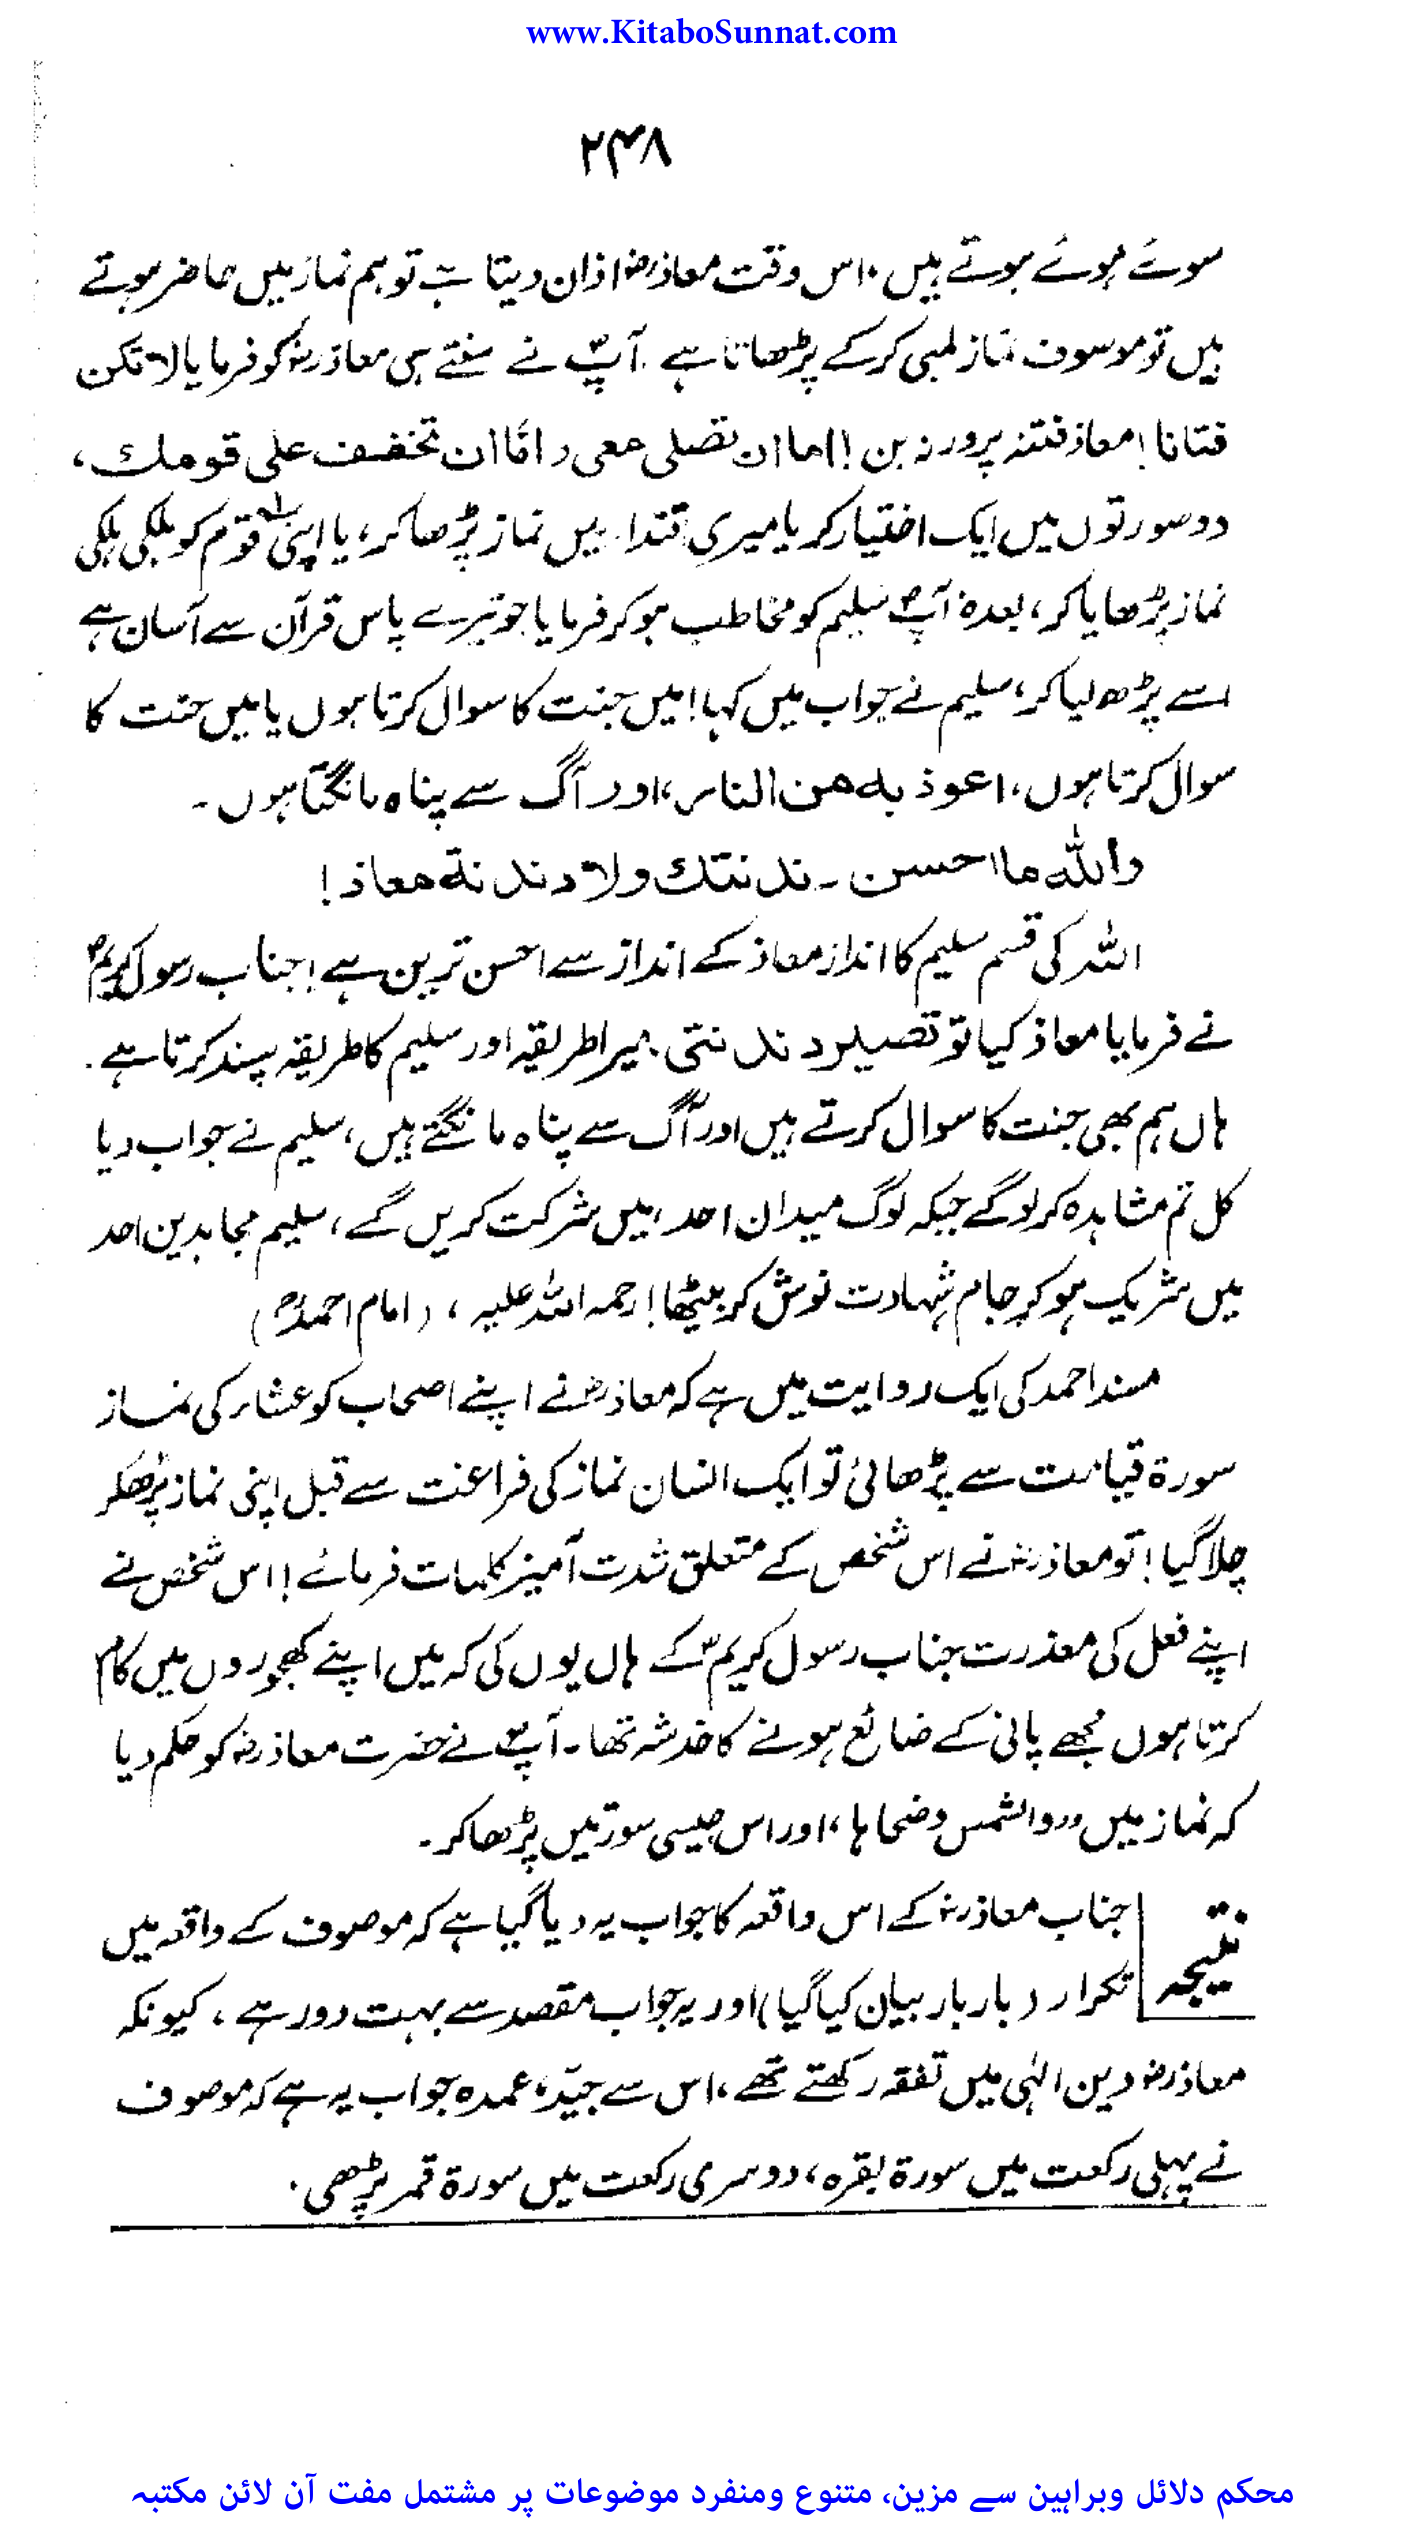 www.KitaboSunnat.com
۲۴۸
سوئے ہوئے ہوتے ہیں ،اس وقت معاذرضاذان دیتا ہے تو ہم نماز میں حاضر ہوتے
ہیں تو موسوف نماز لمبی کرکے پڑھاتا ہے ۔ آپؐ نے سنتے ہی معاذرضکو فرمایا لا تکن
فتانا ! معاذ فتنہ پرور نہ بن !! اما ان تصلی معی و امّا ان تخفف علی قومك ،
دو صورتوں میں ایک اختیار کر یا میری اقتداء میں نماز پڑھا کر، یا اپنی قوم کو ہلکی ہلکی
نماز پڑھایا کر، بعدہٗ آپؐ سلیم کو مخاطب ہو کر فرمایا جو تیرے پاس قرآن سے آسان ہے
اسے پڑھ لیا کر، سلیم نے جواب میں کہا! میں جنت کا سوال کرتا ہوں یا میں جنت کا
سوال کرتا ہوں، اعوذ بہ من الناس، اور آگ سے پناہ مانگتا ہوں۔
واللہ ما احسن ۔ ندنتك ولا دندنة معاذ !
اللہ کی قسم سلیم کا انداز معاذ کے انداز سے احسن ترین ہے! جناب رسول کریمؐ
نے فرمایا معاذ کیا تو تصیر دندنتی . میرا طریقہ اور سلیم کا طریقہ پسند کرتا ہے .
ہاں ہم بھی جنت کا سوال کرتے ہیں اور آگ سے پناہ مانگتے ہیں، سلیم نے جواب دیا
کل تم مشاہدہ کر لو گے جبکہ لوگ میدان احد، میں شرکت کریں گے، سلیم مجاہدین احد
میں شریک ہو کر جام شہادت نوش کر بیٹھا! رحمہ اللہ علیہ ، (امام احمدؒ)
مسند احمد کی ایک روایت میں ہے کہ معاذرض نے اپنے اصحاب کو عشاء کی نماز
سورۃ قیامت سے پڑھائی تو ایک انسان نماز کی فراغت سے قبل اپنی نماز پڑھکر
چلا گیا! تو معاذرض نے اس شخص کے متعلق شدت آمیز کلمات فرمائے !! اس شخص نے
اپنے فعل کی معذرت جناب رسول کریمؐ کے ہاں یوں کی کہ میں اپنے کھجوروں میں کام
کرتا ہوں مجھے پانی کے ضائع ہونے کا خدشہ تھا۔ آپؐ نے حضرت معاذرض کو حکم دیا
کہ نماز میں ”والشمس وضحاہا، اور اس جیسی سورتیں پڑھا کر۔
نتیجہ
جناب معاذرض کے اس واقعہ کا جواب یہ دیا گیا ہے کہ موصوف کے واقعہ میں
تکرار (بار بار بیان کیا گیا) اور یہ جواب مقصد سے بہت دور ہے ، کیونکہ
معاذرض دین الٰہی میں تفقہ رکھتے تھے، اس سے جیّد، عمدہ جواب یہ ہے کہ موصوف
نے پہلی رکعت میں سورۃ بقرہ، دوسری رکعت میں سورۃ قمر پڑھی .
محکم دلائل وبراہین سے مزین، متنوع ومنفرد موضوعات پر مشتمل مفت آن لائن مکتبہ